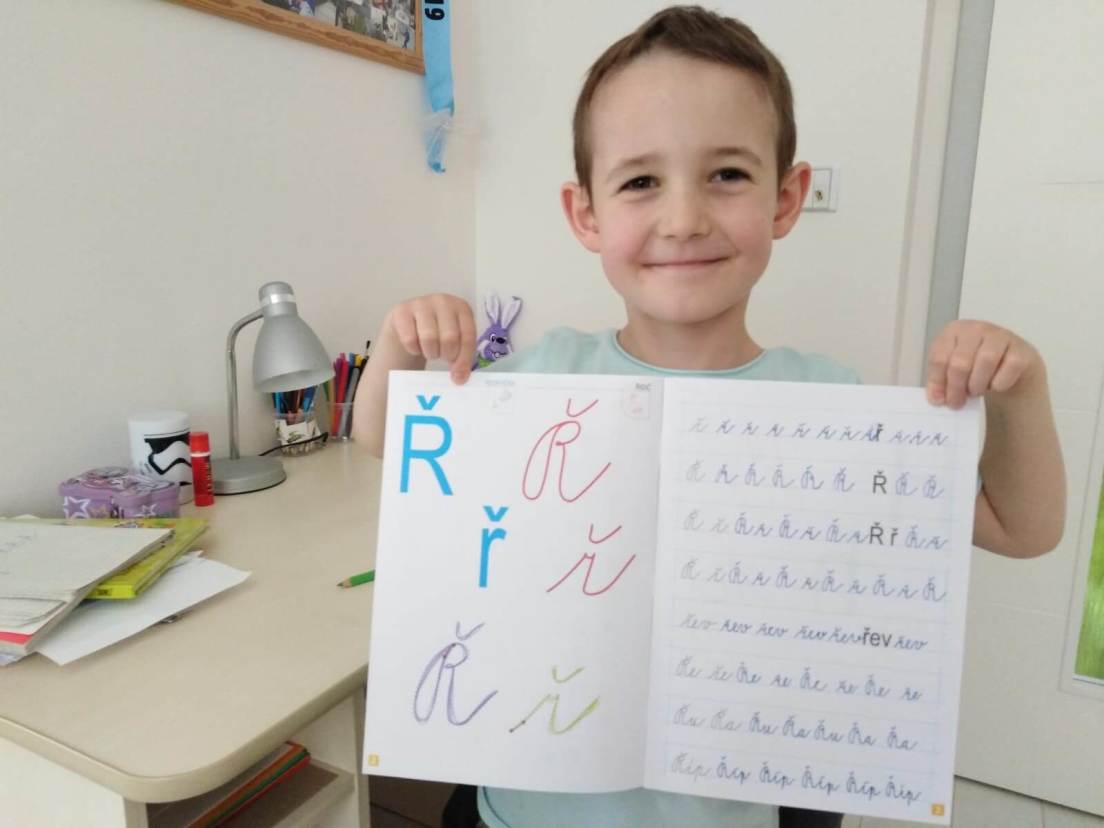 19
Ř Ř
ř ř
Ř ř
2
ř ř ř ř ř ř ř ř ř ř ř ř
Ř Ř Ř Ř Ř Ř Ř Ř Ř
Ř ř Ř ř Ř ř Ř ř Ř ř Ř ř
Ř ř Ř ř Ř ř Ř ř Ř ř Ř
řev řev řev řev řev řev řev
Ře ře Ře ře Ře ře Ře ře
Řu Řa Řu Řa Řu Řa Řa
Říp Říp Říp Říp Říp Říp
3